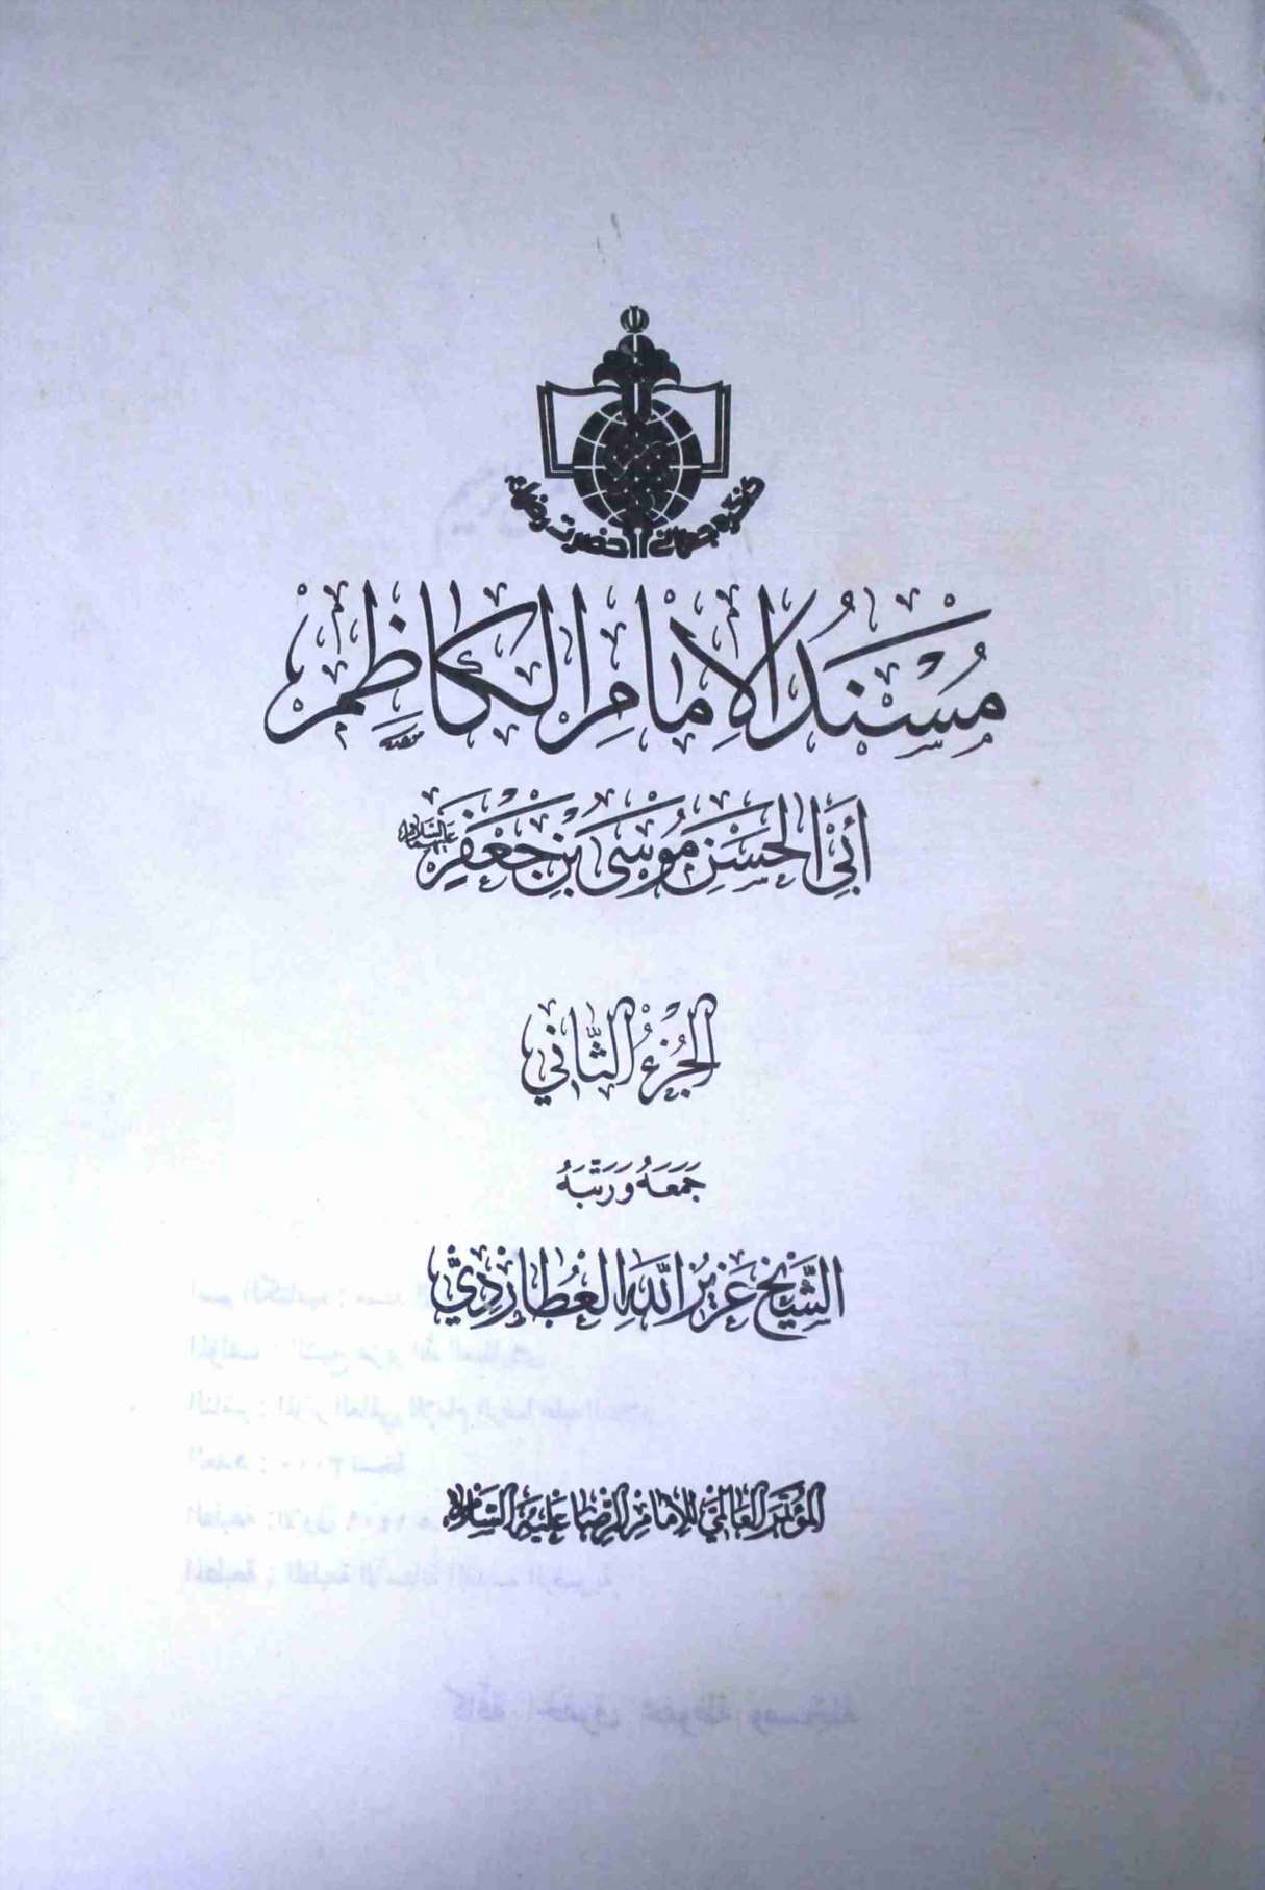 كنگره جهانی حضرت رضا
مُسْنَدُ الإمَامِ الكَاظِمِ
أَبِي الحَسَنِ مُوسَى بْنِ جَعْفَرٍ عليه السلام
الجُزْءُ الثَّانِي
جَمَعَهُ وَرَتَّبَهُ
الشَّيْخُ عَزِيزُ اللهِ العُطَارِدِيُّ
المؤتمر العالمي للإمام الرضا عليه السلام